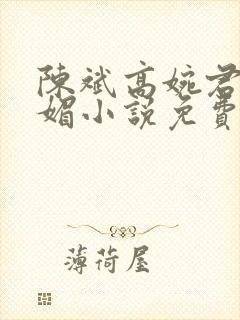 陳斌高婉君
媚小說免費
薄荷屋